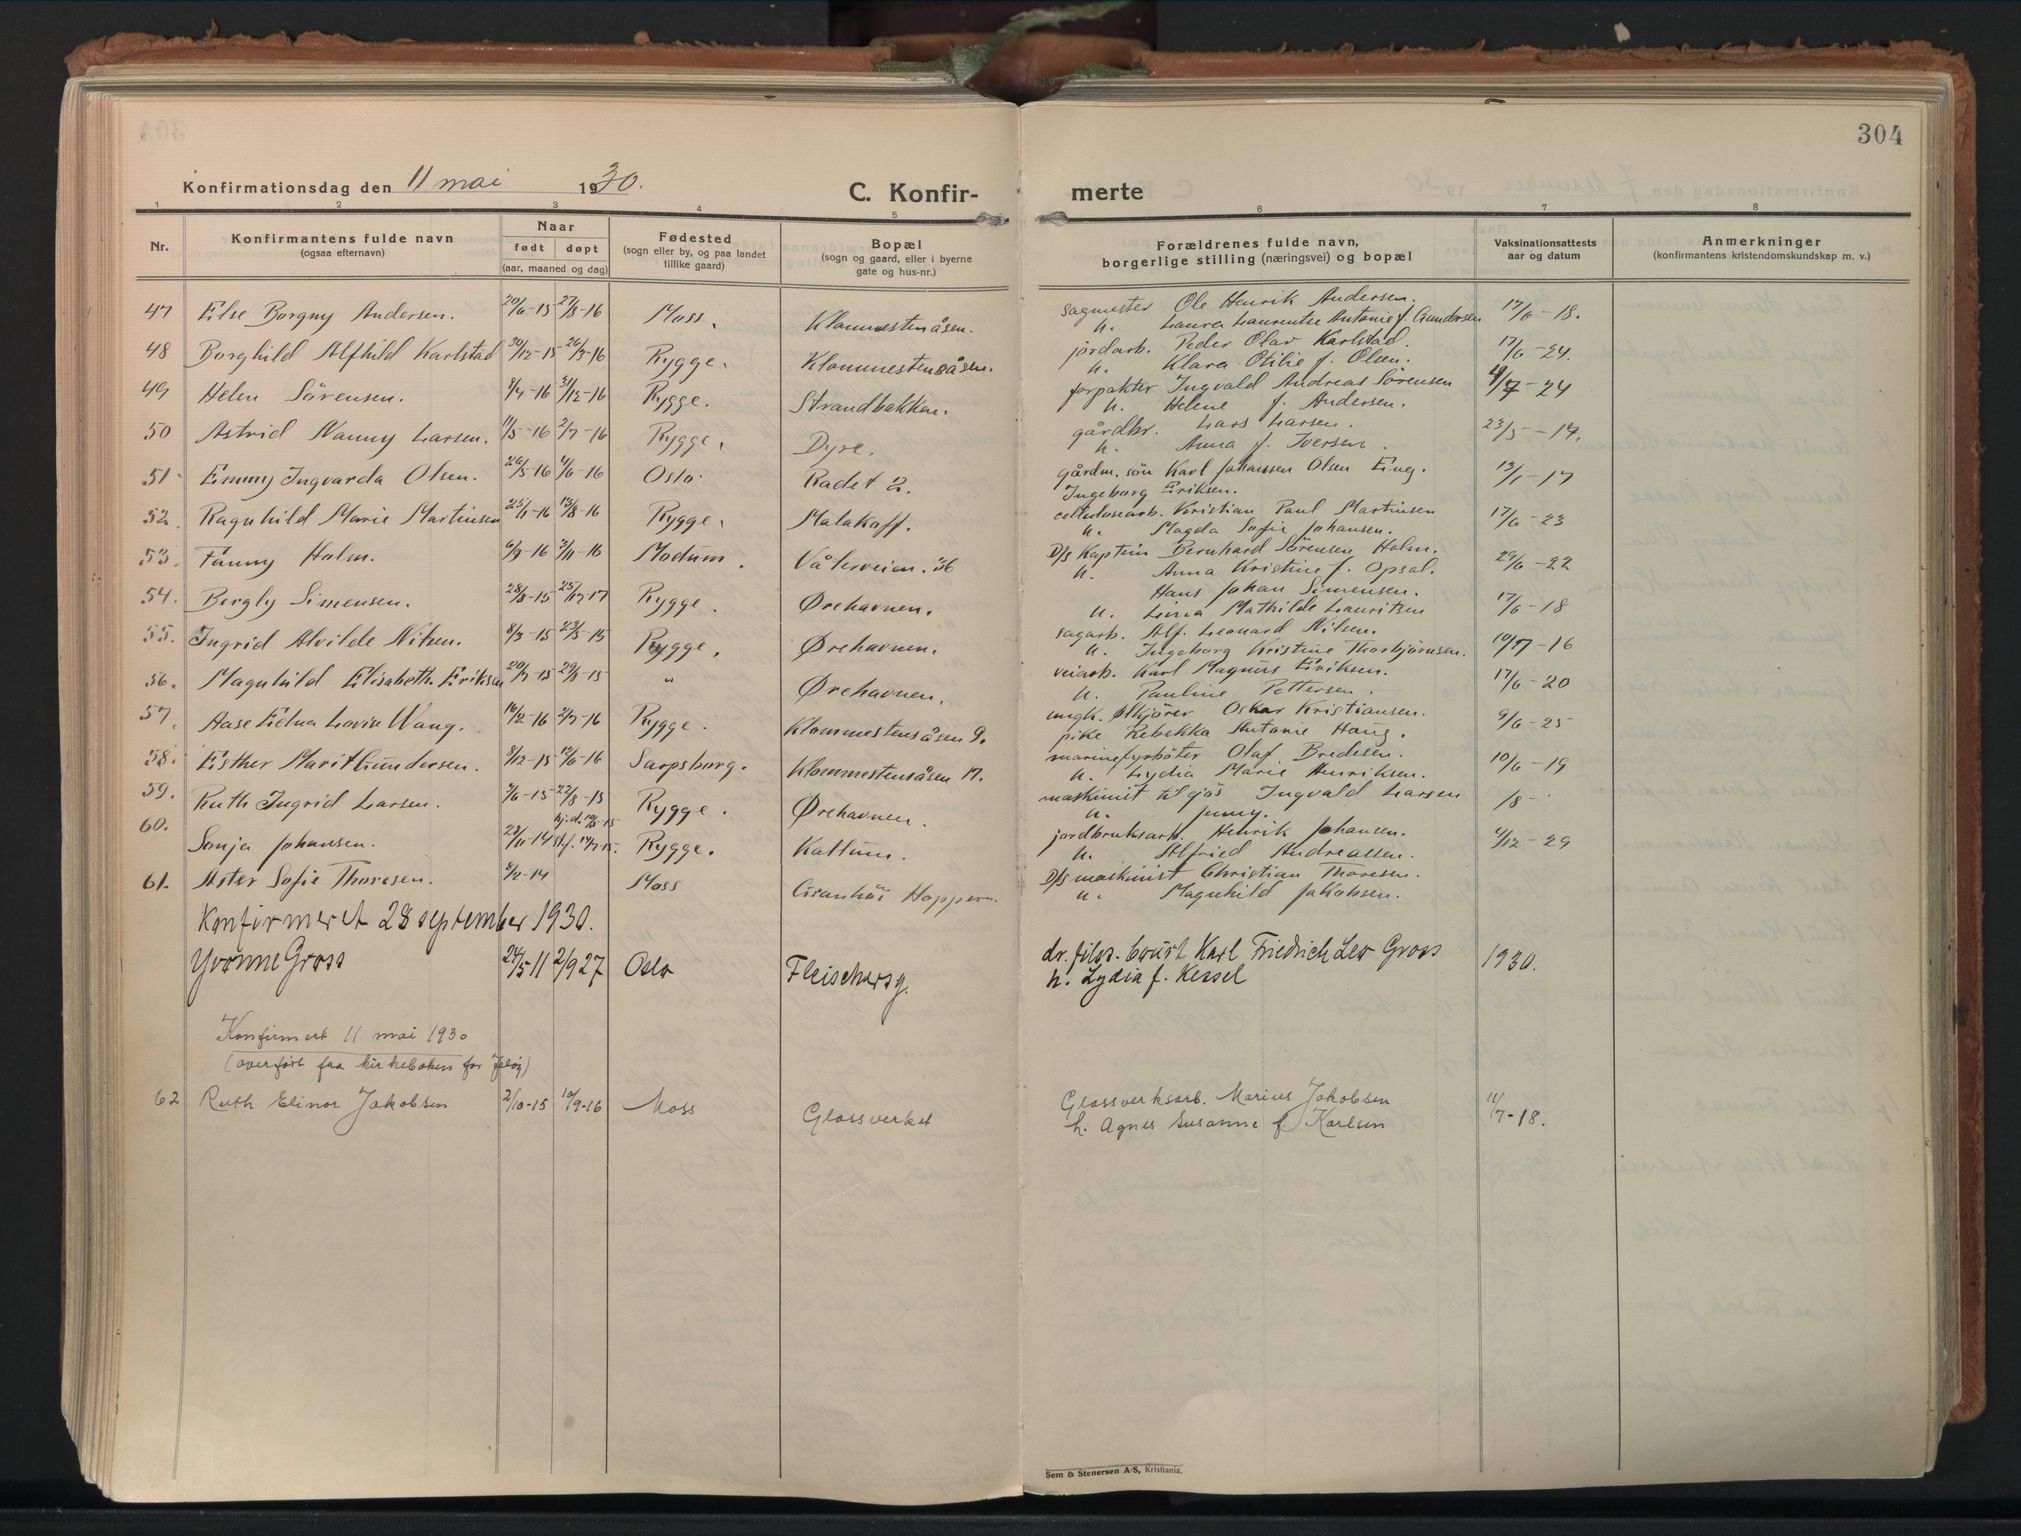 304
Konfirmationsdag den 11 mai 1930.
C. Konfir-
merte
1 2 3 4 5 6 7 8
Nr.
Konfirmantens fulde navn
(ogsaa efternavn)
Naar
født døpt
(aar, maaned og dag)
Fødested
(sogn eller by, og paa landet
tillike gaard)
Bopæl
(sogn og gaard, eller i byerne
gate og hus-nr.)
Forældrenes fulde navn,
borgerlige stilling (næringsvei) og bopæl
Vaksinationsattests
aar og datum
Anmerkninger
(konfirmantens kristendomskundskap m. v.)
47 Else Borgny Andersen. 20/6-15 27/8-16 Moss. Klommestensåsen. sagmester Ole Henrik Andersen. 17/6-18.
h. Laura Laurentse Antonie f. Gundersen
48 Borghild Alfhild Karlstad 30/12-15 26/3-16 Rygge. Klommestensåsen. jordarb. Peder Olav Karlstad. 17/6-24.
h. Klara Otilie f. Olsen.
49 Helen Sörensen. 8/7-16 31/12-16 Rygge. Strandbakken. forpakter Ingvald Andreas Sörensen 4/7-24
h. Helene f. Andersen.
50 Astrid Nanny Larsen. 11/5-16 2/7-16 Rygge. Dyre. gårdbr. Lars Larsen. 23/5-19.
h. Anna f. Iversen.
51 Emmy Ingvarda Olsen. 26/5-16 4/6-16 Oslo. Radet 2. gårdm. sön Karl Johanssen Olsen Eng. 13/1-17
Ingeborg Eriksen.
52. Ragnhild Marie Martinsen 25/1-16 13/8-16 Rygge. Malakoff. cellulosearb. Kristian Paul Martinsen 17/6-23
h. Magda Sofie Johansen.
53. Fanny Holm. 6/9-16 3/11-16 Modum. Våterveien. 36 D/s Kaptein Bernhard Sörensen Holm. 29/6-22
h. Anna Kristine f. Opsal.
54. Bergly Simensen. 28/8-15 25/12-17 Rygge. Ørehavnen. Hans Johan Simensen. 17/6-18
h. Lina Mathilde Lauritsen
55. Ingrid Alvilde Nilsen. 8/3-15 23/5-15 Rygge. Ørehavnen. sagarb. Alf. Leonard Nilsen. 10/7-16
h. Ingeborg Kristine Thorbjörnsen.
56. Magnhild Elisabeth Eriksen 20/7-15 29/8-15 " Ørehavnen. veiarb. Karl Magnus Eriksen. 17/6-20
h. Pauline Pettersen.
57. Aase Edna Lovise Wang. 16/2-16 2/7-16 Rygge. Klommestensåsen 9. ugk. Ølkjörer Oskar Kristiansen. 9/6-25
pike Rebekka Antonie Haug.
58. Esther Marit Gundersen. 8/12-15 12/6-16 Sarpsborg. Klommestensåsen 17. marinefyrböter Olaf Bredesen. 10/6-19
h. Lydia Marie Henriksen.
59. Ruth Ingrid Larsen. 3/6-15 22/8-15 Rygge. Ørehavnen. maskinist til sjös Ingvald Larsen /8-
h. Jenny.
60. Sonja Johansen. 23/11-14 hj.d. 12/5-15 stf. 14/7-15. Rygge. Kallum. jordbruksarb. Henrik Johansen. 4/12-29
h. Alfried Andreassen.
61. Aster Sofie Thoresen. 2/2-14 Moss Granhöi Hoppern. D/s maskinist Christian Thoresen.
h. Magnhild Jakobsen.
Konfirmeret 28 september 1930.
Yvonne Gross 24/5 11 2/9 27 Oslo Fleischersg. dr. filos. Kurt Karl Friedrich Leo Gross 1930.
h. Lydia f. Kessel
Konfirmert 11 mai 1930
(overført fra kirkeboken for Jeløy)
62 Ruth Elinor Jakobsen 2/10-15 10/9-16 Moss Glassverket Glassverksarb. Marius Jakobsen 11/7-18.
h. Agnes Susanne f. Karlsen
Sem & Stenersen A/S, Kristiania.